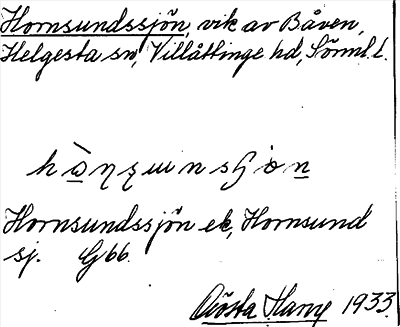 Hornsundssjön, vik av Båven,
Helgesta sn, Villåttinge hd, Sörml. l.
Hornsundssjön ek, Hornsund
sj. G 66.
Gösta Harry 1933.